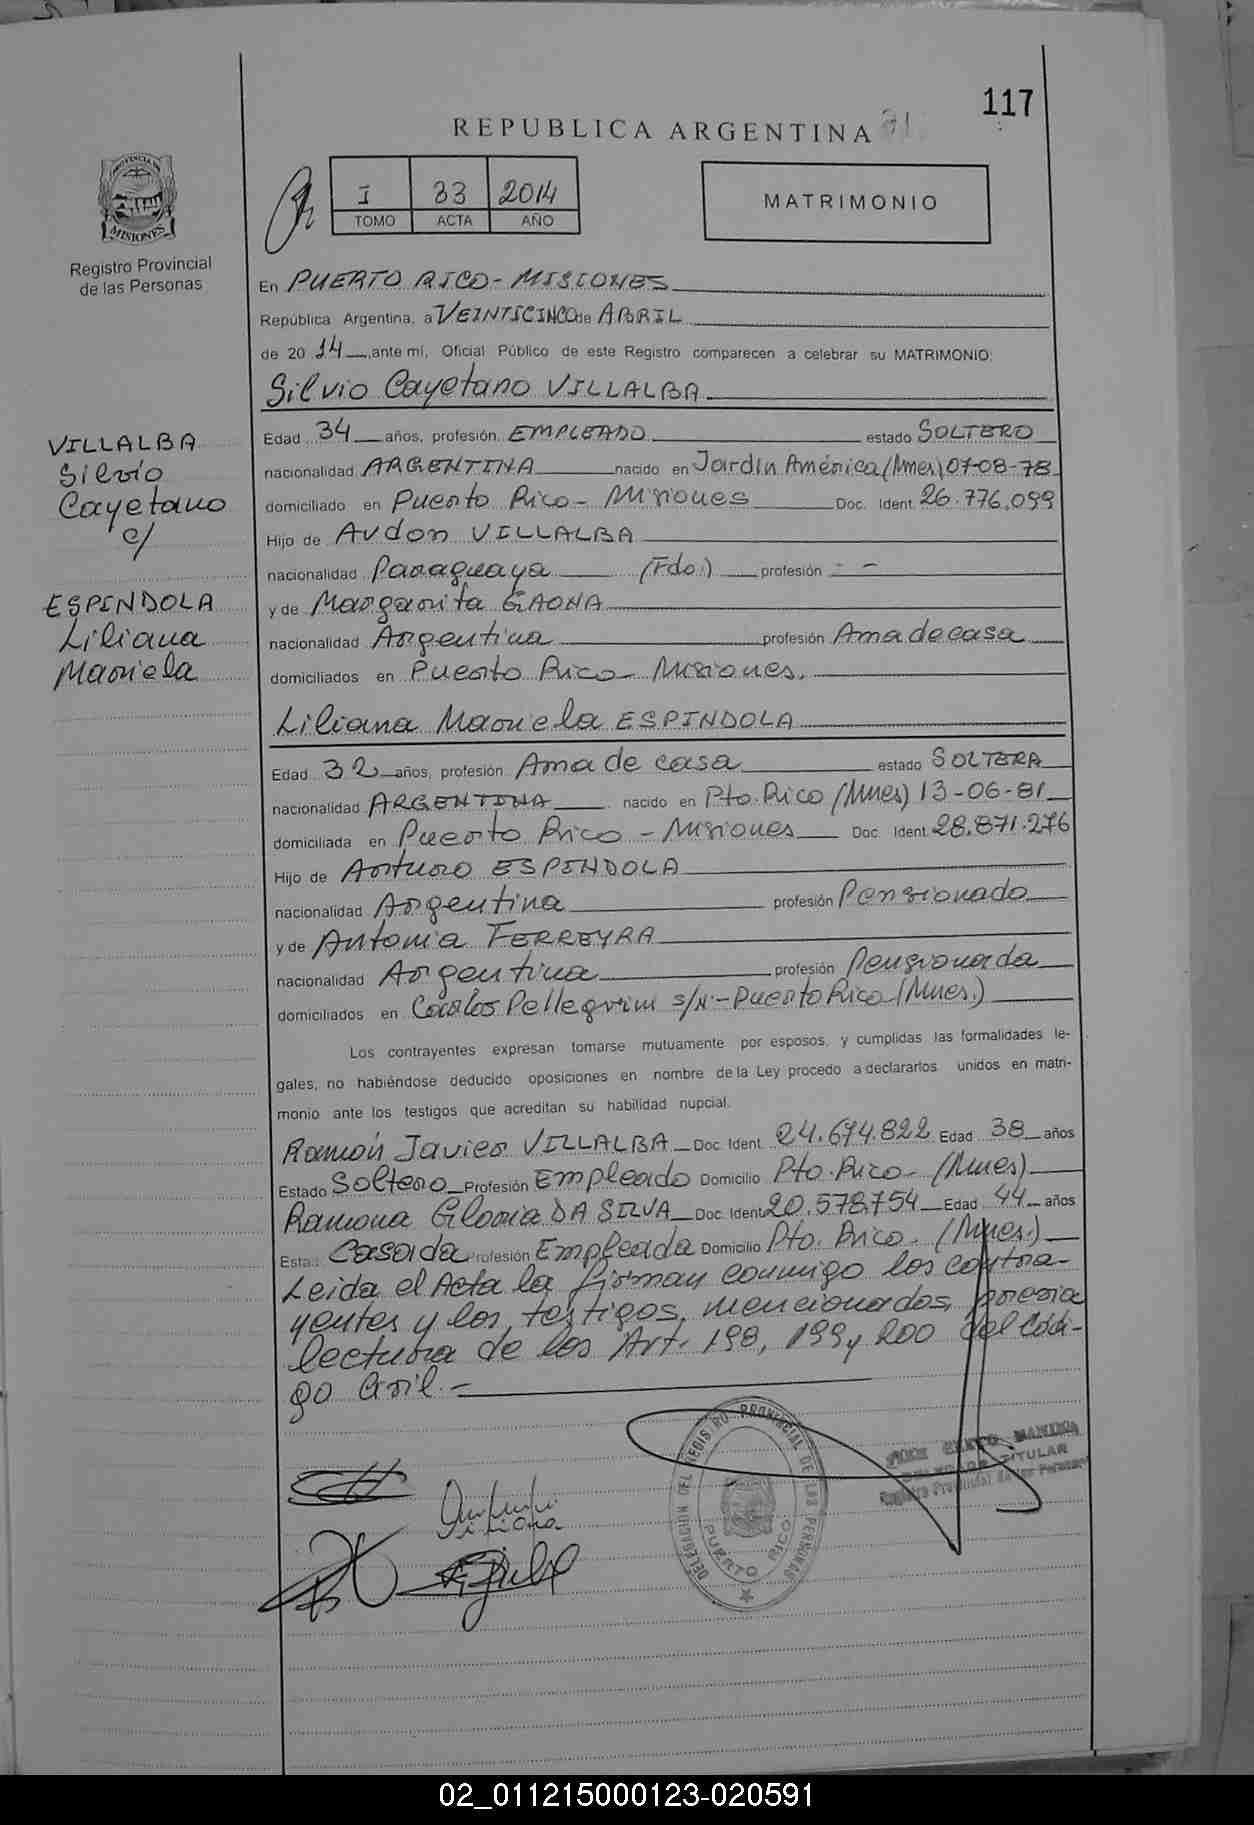 117
REPUBLICA ARGENTINA
I 33 2014
TOMO ACTA AÑO
MATRIMONIO
PROVINCIA DE MISIONES
Registro Provincial
de las Personas
En PUERTO RICO - MISIONES
República Argentina, a VEINTICINCO de ABRIL
de 20 14, ante mí, Oficial Público de este Registro comparecen a celebrar su MATRIMONIO:
Silvio Cayetano VILLALBA
VILLALBA
Silvio
Cayetano
c/
ESPINDOLA
Liliana
Mariela
Edad 34 años, profesión EMPLEADO estado SOLTERO
nacionalidad ARGENTINA nacido en Jardín América (Mnes) 07-08-78
domiciliado en Puerto Rico - Misiones Doc. Ident. 26.776.099
Hijo de Avdon VILLALBA
nacionalidad Paraguaya (Fdo.) profesión - -
y de Margarita GAONA
nacionalidad Argentina profesión Ama de casa
domiciliados en Puerto Rico - Misiones.
Liliana Mariela ESPINDOLA
Edad 32 años, profesión Ama de casa estado SOLTERA
nacionalidad ARGENTINA nacido en Pto. Rico (Mnes) 13-06-81
domiciliada en Puerto Rico - Misiones Doc. Ident. 28.871.276
Hijo de Arturo ESPINDOLA
nacionalidad Argentina profesión Pensionado
y de Antonia FERREYRA
nacionalidad Argentina profesión Pensionada
domiciliados en Carlos Pellegrini s/n - Puerto Rico (Mnes.)
Los contrayentes expresan tomarse mutuamente por esposos, y cumplidas las formalidades le-
gales, no habiéndose deducido oposiciones en nombre de la Ley procedo a declararlos unidos en matri-
monio ante los testigos que acreditan su habilidad nupcial.
Ramón Javier VILLALBA Doc. Ident. 24.674.822 Edad 38 años
Estado Soltero Profesión Empleado Domicilio Pto. Rico - (Mnes)
Ramona Gloria DA SILVA Doc. Ident. 20.578.754 Edad 44 años
Esta.: Casada Profesión Empleada Domicilio Pto. Rico - (Mnes.)
Leida el Acta la firman conmigo los contra-
yentes y los testigos, mencionados, previa
lectura de los Art. 198, 199 y 200 del Códi-
go Civil.-
Liliana
DELEGACION DEL REGISTRO PROVINCIAL DE LAS PERSONAS
PUERTO RICO
TITULAR
Registro Provincial de las Personas
02_011215000123-020591